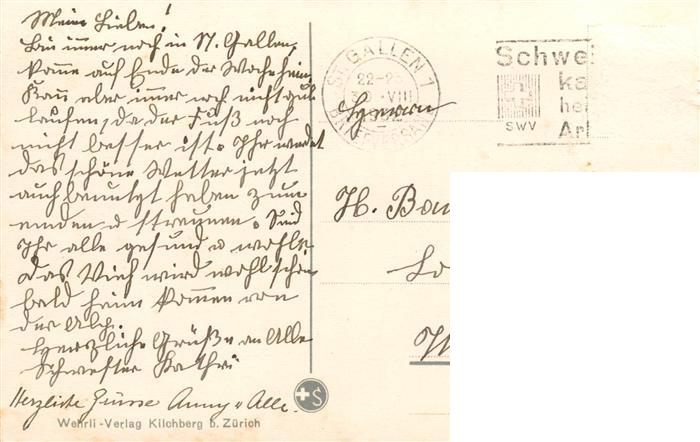 Meine Lieben!
Bin immer noch in St. Gallen,
komme auf Ende der Woche heim,
Kann aber immer noch nicht gut
laufen, da der Fuß noch
nicht besser ist. Ihr werdet
das schöne Wetter jetzt
auch benutzt haben zum
emden u streuen. Sind
Ihr alle gesund u wohl.
Das Vieh wird wohl schon
bald heim kommen von
der Alp.
Herzliche Grüße an Alle
Schwester Kathri
Herzliche Grüsse Anny u Alle.
Wehrli-Verlag Kilchberg b. Zürich
ST. GALLEN 1
22-2
VIII
Schwei
ka
he
Ar
SWV
H. Bau